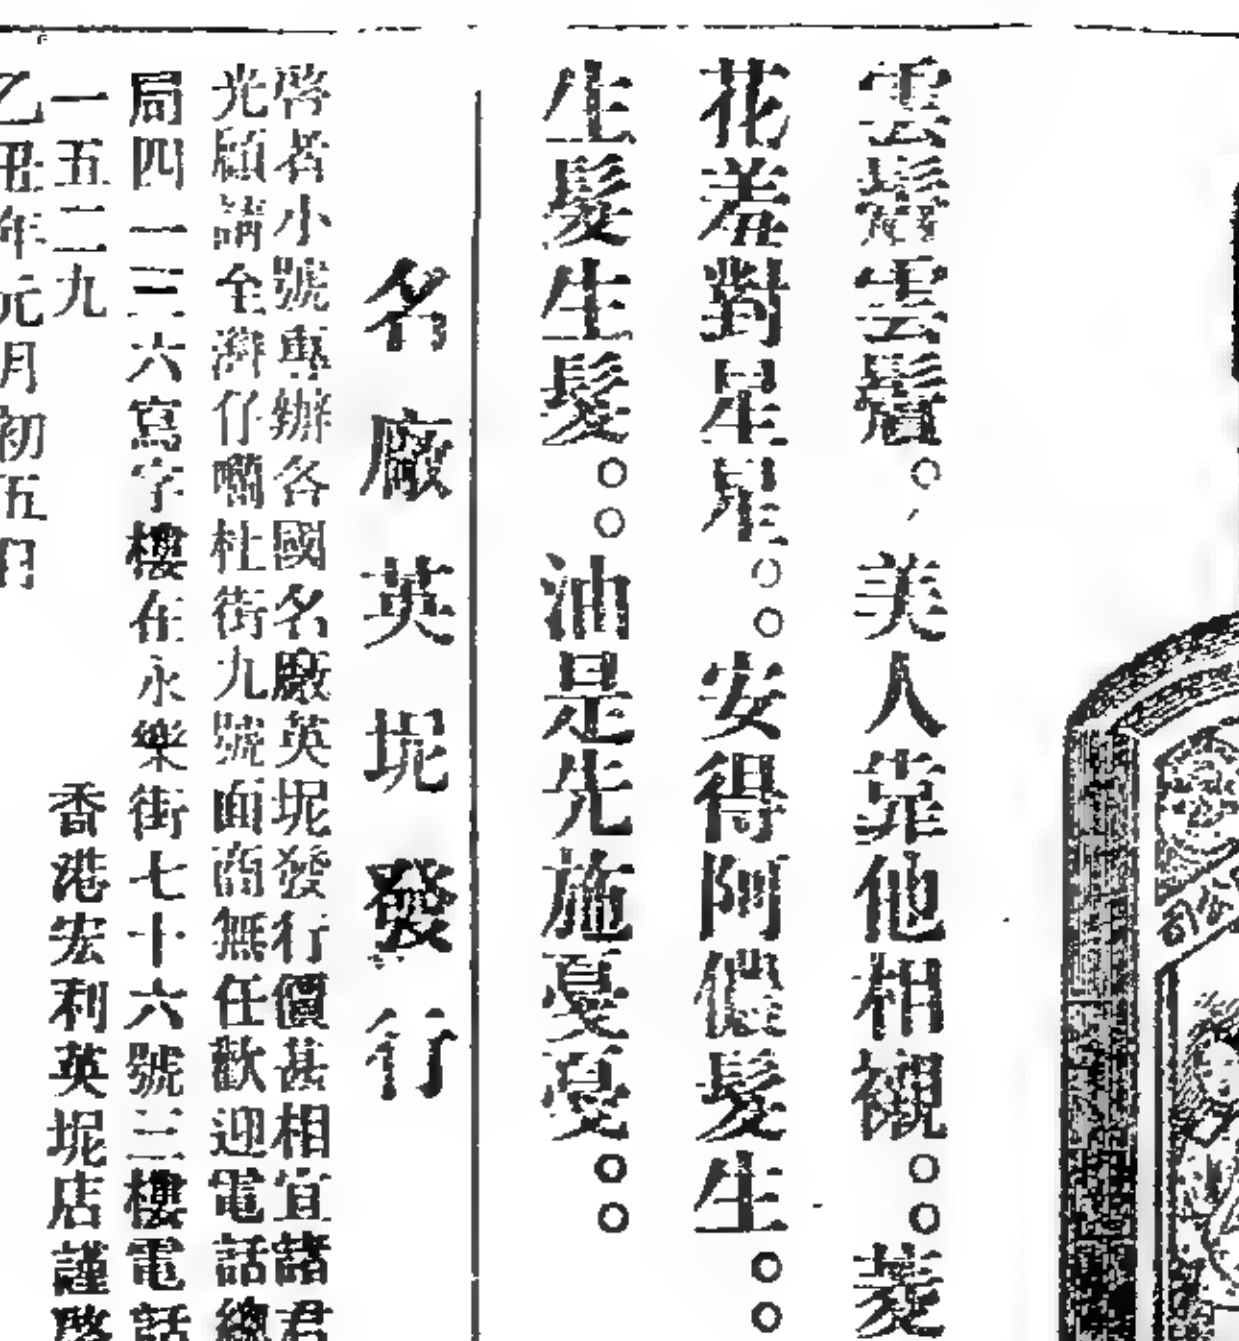 雲鬢雲鬢。美人靠他相襯。。菱
花羞對星星星。。安得阿儂髮生。。
生髮生髮。。油是先施戞戞。。
名廠英坭發行
啓者小號專辦各國名廠英坭發行價甚相宜諸君
光顧請至灣仔囒杜街九號面商無任歡迎電話總
局四一三六寫字樓在永樂街七十六號三樓電話
一五二九
香港宏利英坭店謹啓
乙丑年元月初五日
公司